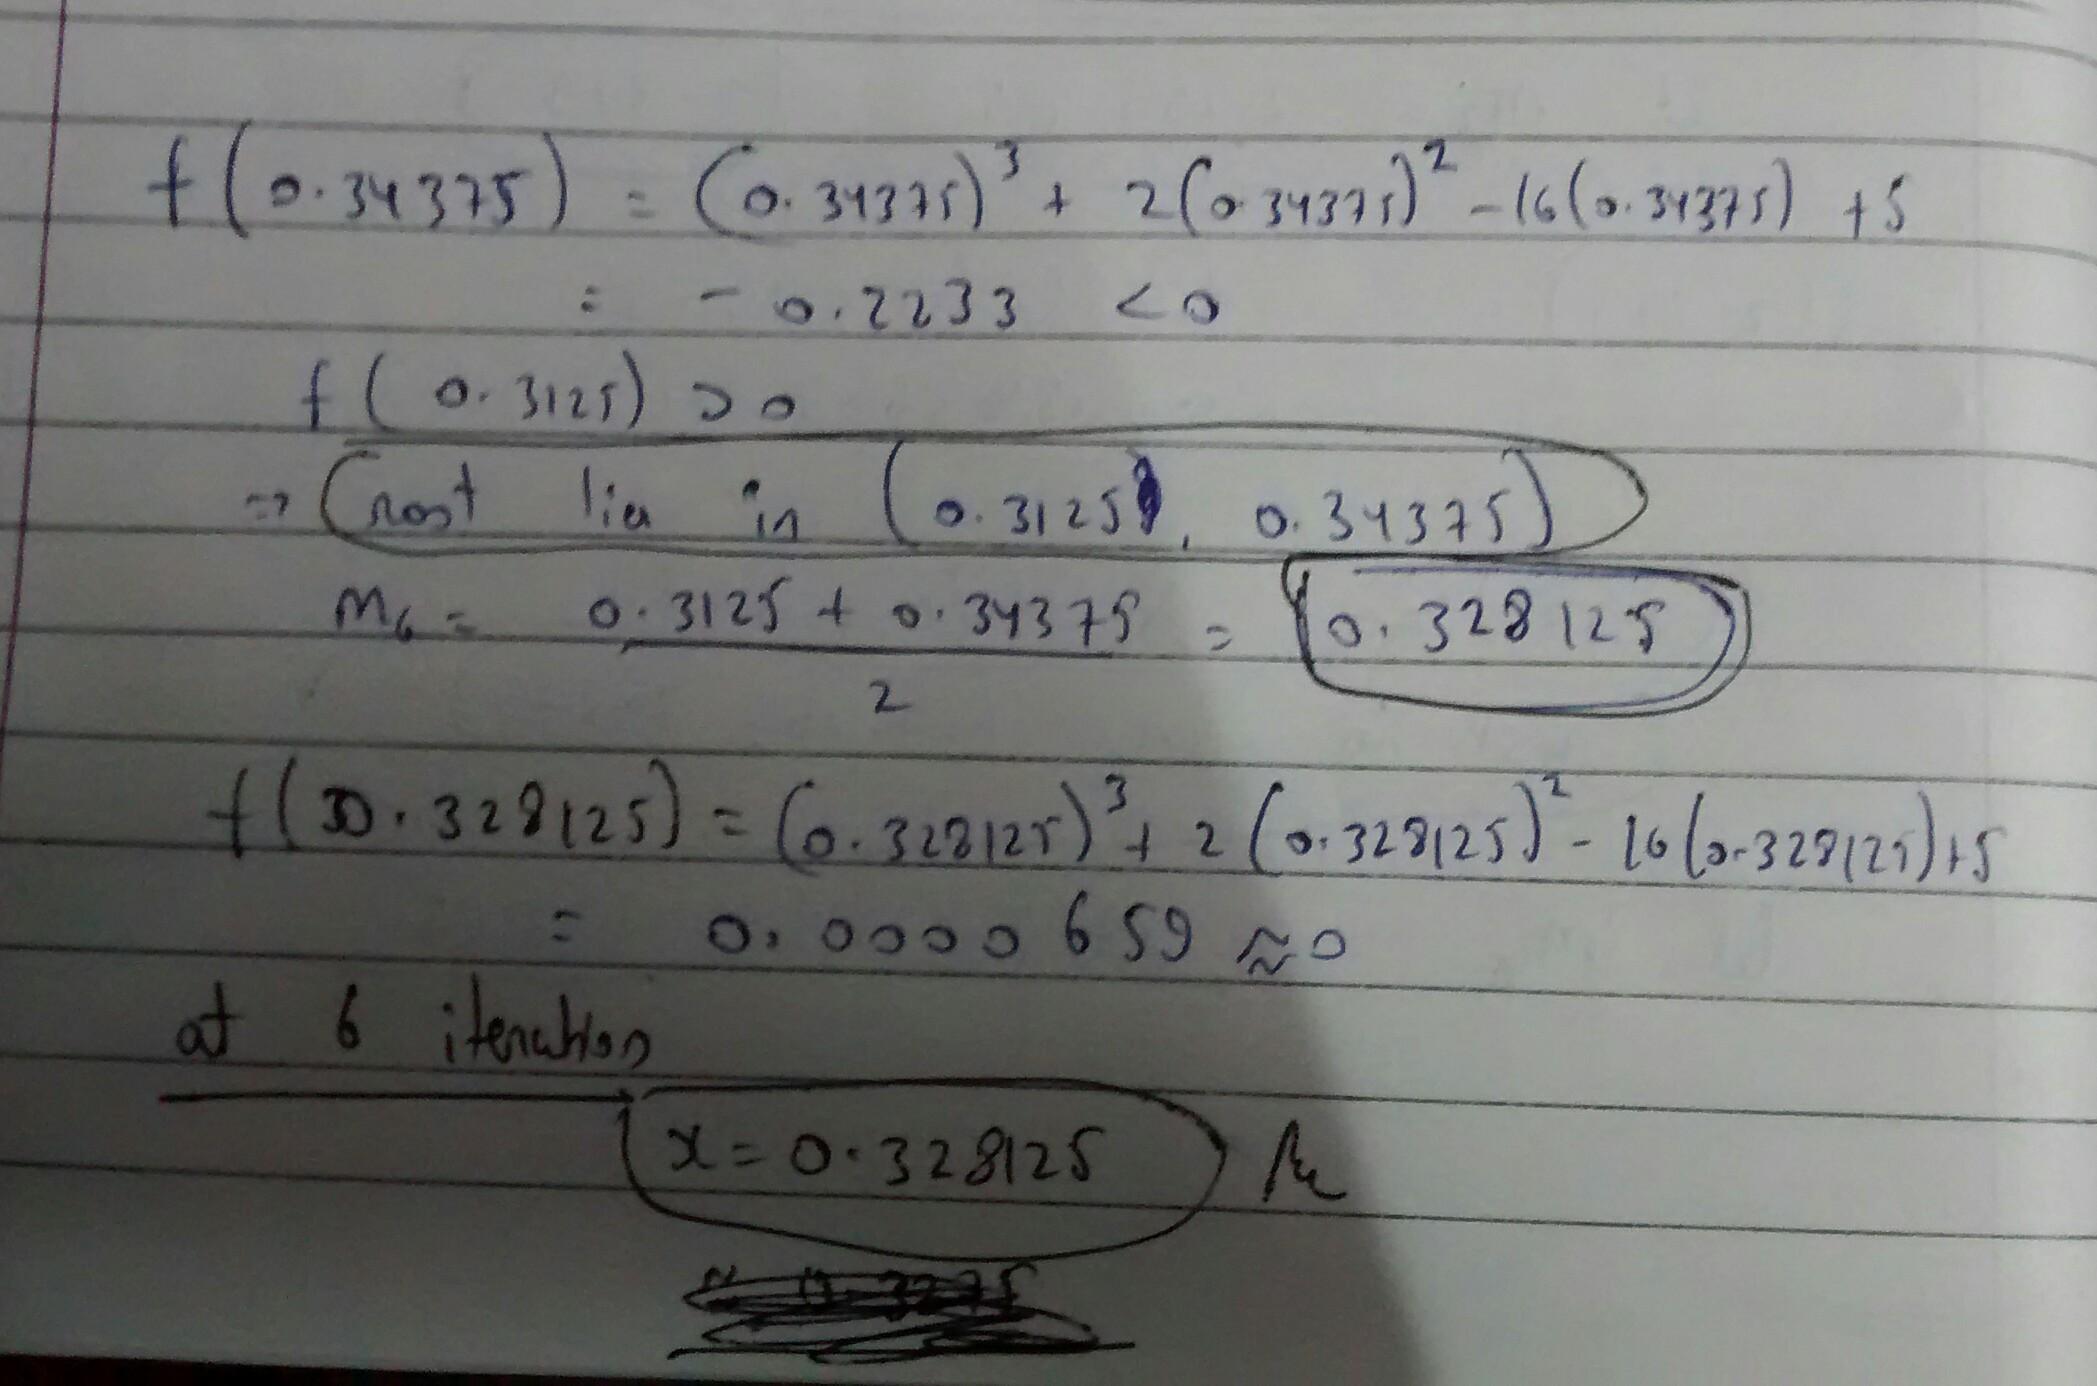 f(0.34375) = (0.34375)³ + 2(0.34375)² - 16(0.34375) + 5
= - 0.2233 < 0
f(0.3125) > 0
⇒ root lies in (0.3125, 0.34375)
M₆ = 0.3125 + 0.34375 = 0.328125
2
f(0.328125) = (0.328125)³ + 2(0.328125)² - 16(0.328125) + 5
= 0.0000659 ≈ 0
at 6 iteration
x = 0.328125